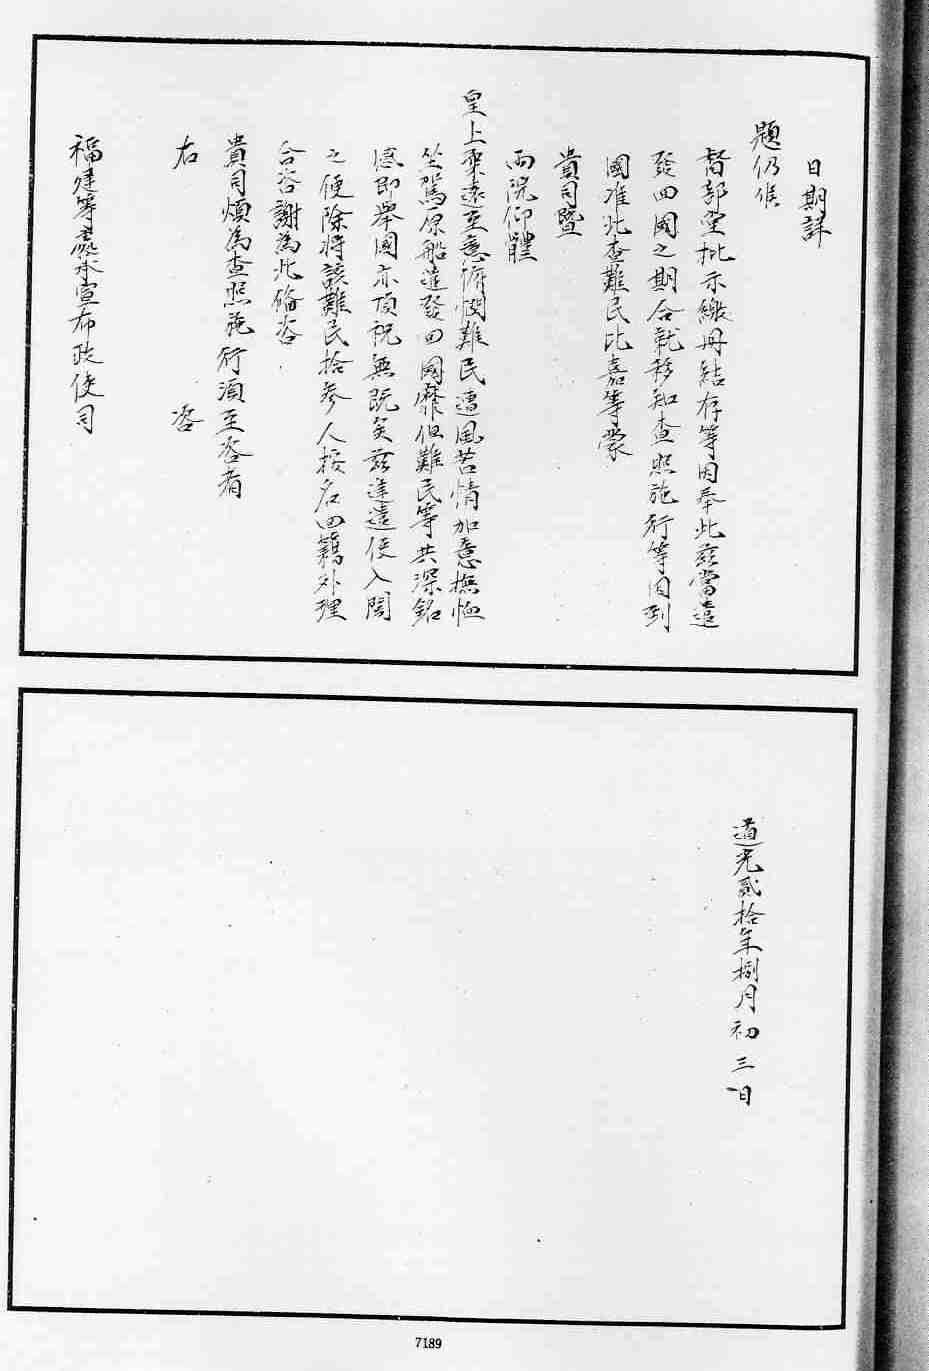 日期詳
題仍候
督部堂批示繳冊結存等因奉此茲當遣
發回國之期合就移知查照施行等因到
國准此查難民比嘉等蒙
貴司暨
兩院仰體
皇上柔遠至意俯憫難民遭風苦情加意撫恤
坐駕原船遣發回國靡但難民等共深銘
感即舉國亦頂祝無既矣茲逢遣使入閩
之便除將該難民拾參人按名回籍外理
合咨謝為此備咨
貴司煩為查照施行須至咨者
右 咨
福建等處承宣布政使司
道光貳拾年捌月初三日
7189